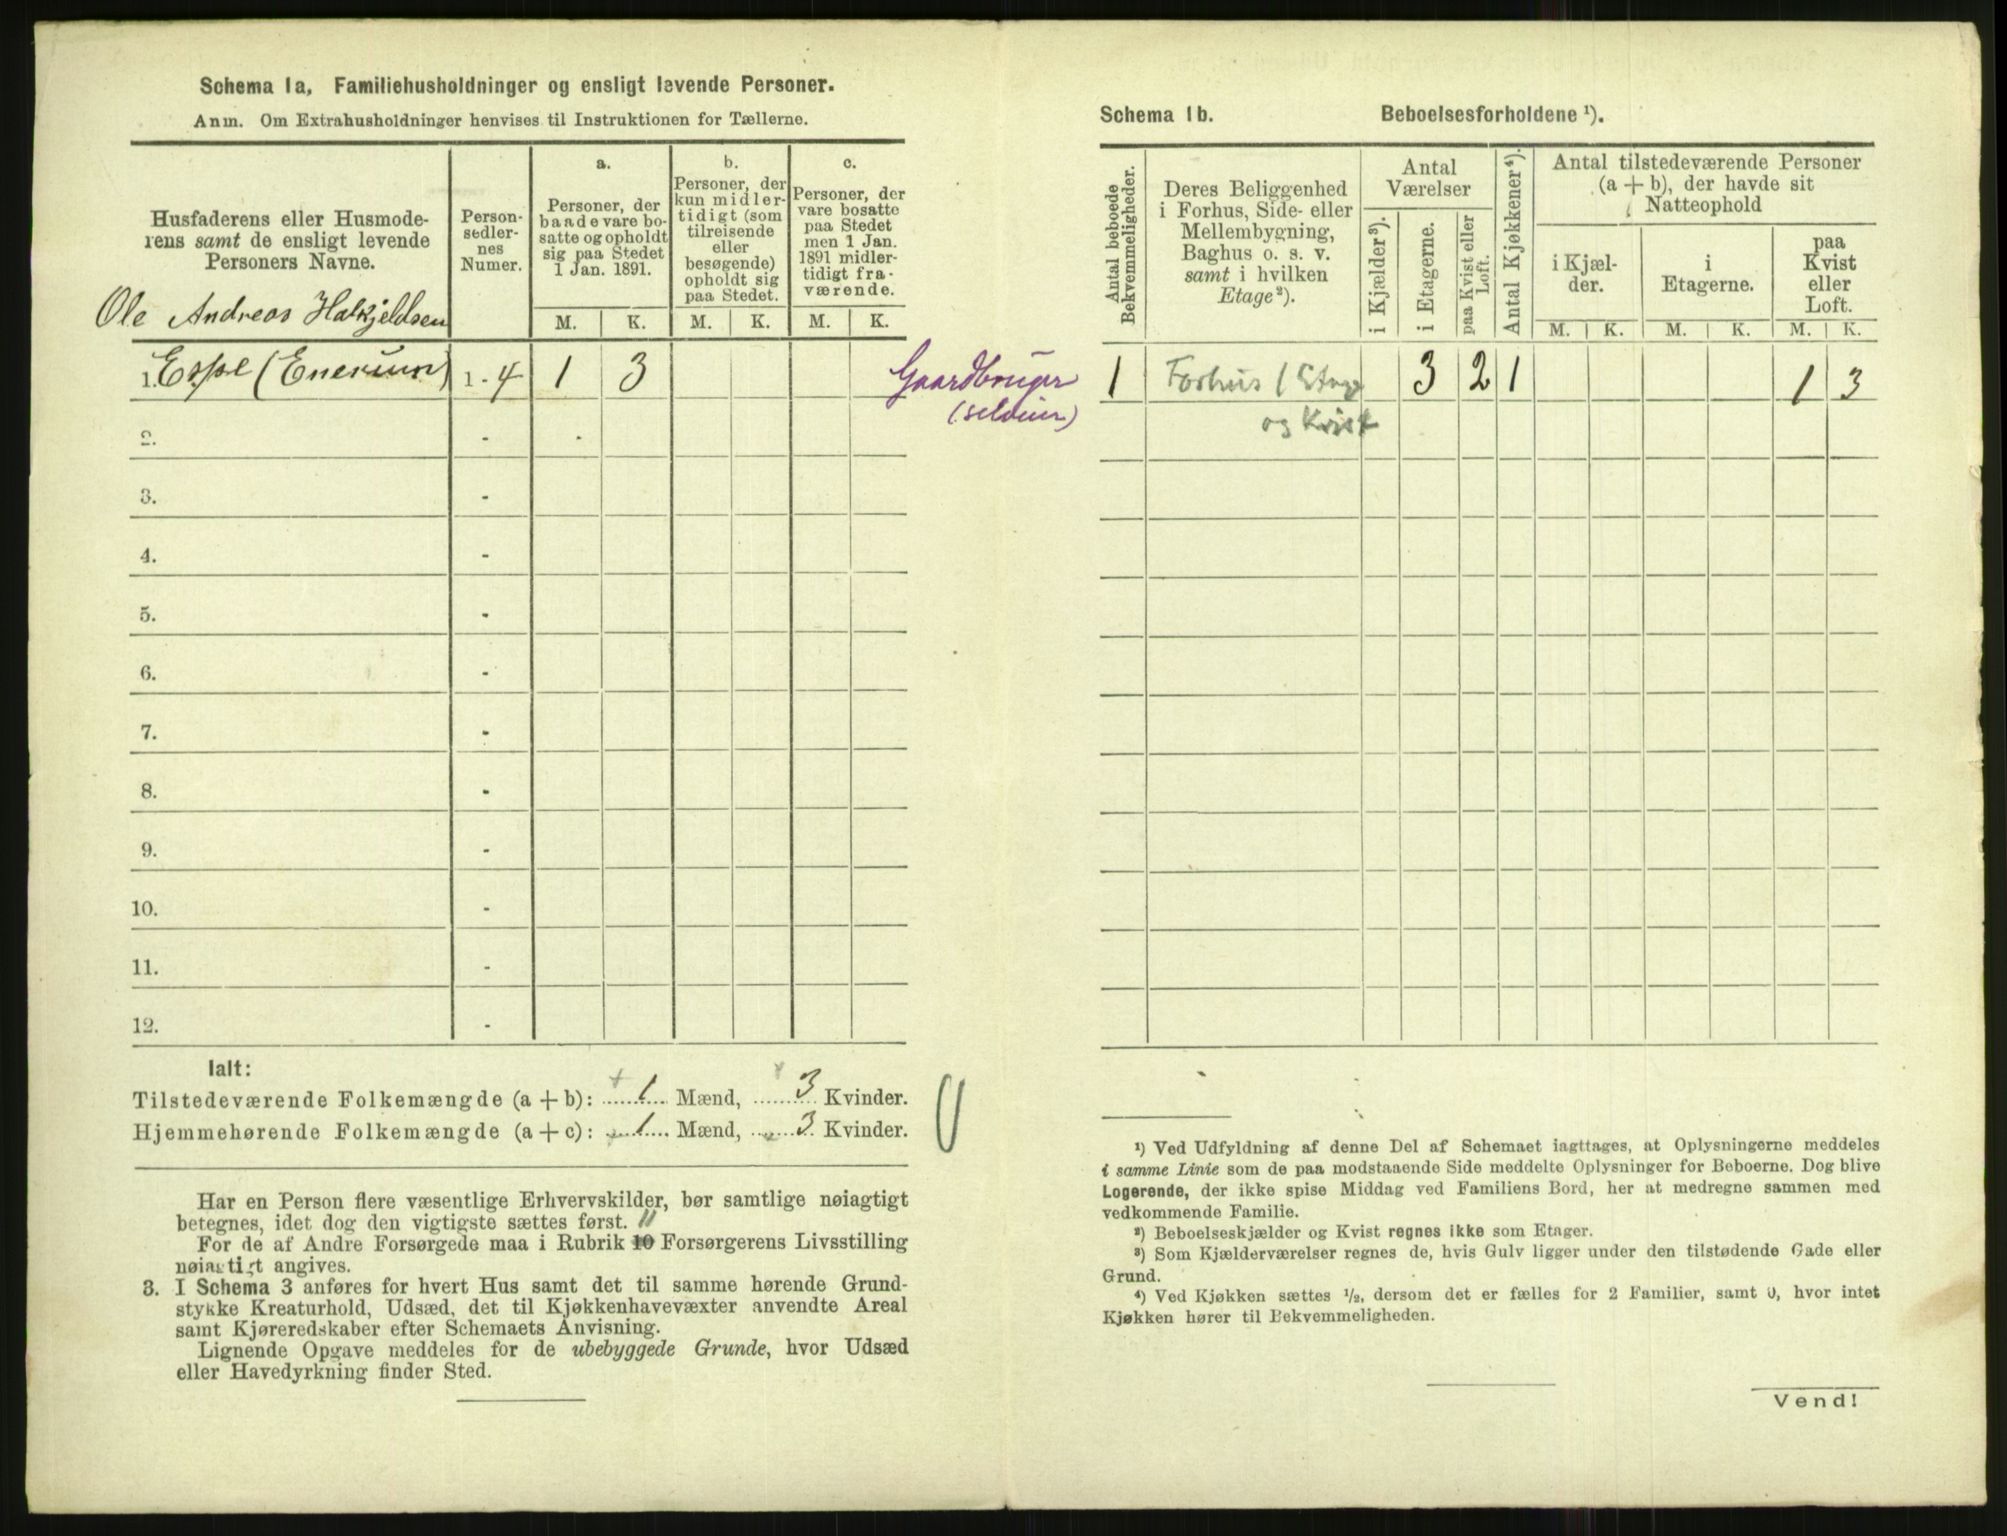 Schema 1a, Familiehusholdninger og ensligt levende Personer.
Anm. Om Extrahusholdninger henvises til Instruktionen for Tællerne.
Husfaderens eller Husmode-
rens samt de ensligt levende
Personers Navne.
Person-
sedler-
nes
Numer.
a.
Personer, der
baade vare bo-
satte og opholdt
sig paa Stedet
1 Jan. 1891.
M. K.
b.
Personer, der
kun midler-
tidigt (som
tilreisende
eller
besøgende)
opholdt sig
paa Stedet.
M. K.
c.
Personer, der
vare bosatte
paa Stedet
men 1 Jan.
1891 midler-
tidigt fra-
værende.
M. K.
Ole Andreas Halkjeldsen
1. Espe (Enerum) 1 - 4 1 3
Gaardbruger
(selveier)
2. -
3. -
4. -
5. -
6. -
7. -
8. -
9. -
10. -
11. -
12. -
Ialt:
Tilstedeværende Folkemængde (a + b): 1 Mænd, 3 Kvinder.
Hjemmehørende Folkemængde (a + c): 1 Mænd, 3 Kvinder.
Har en Person flere væsentlige Erhvervskilder, bør samtlige nøiagtigt
betegnes, idet dog den vigtigste sættes først. 11
For de af Andre Forsørgede maa i Rubrik 10 Forsørgerens Livsstilling
nøiagtigt angives.
3. I Schema 3 anføres for hvert Hus samt det til samme hørende Grund-
stykke Kreaturhold, Udsæd, det til Kjøkkenhavevæxter anvendte Areal
samt Kjøreredskaber efter Schemaets Anvisning.
Lignende Opgave meddeles for de ubebyggede Grunde, hvor Udsæd
eller Havedyrkning finder Sted.
Schema 1b. Beboelsesforholdene ¹).
Antal beboede
Bekvemmeligheder.
Deres Beliggenhed
i Forhus, Side- eller
Mellembygning,
Baghus o. s. v.
samt i hvilken
Etage ²).
Antal
Værelser
i Kjælder ³).
i Etagerne.
paa Kvist eller
Loft.
Antal Kjøkkener ⁴).
Antal tilstedeværende Personer
(a + b), der havde sit
Natteophold
i Kjæl-
der.
M. K.
i
Etagerne.
M. K.
paa
Kvist
eller
Loft.
M. K.
1 Forhus 1 Etage 3 2 1 1 3
og Kvist
¹) Ved Udfyldning af denne Del af Schemaet iagttages, at Oplysningerne meddeles
i samme Linie som de paa modstaaende Side meddelte Oplysninger for Beboerne. Dog blive
Logerende, der ikke spise Middag ved Familiens Bord, her at medregne sammen med
vedkommende Familie.
²) Beboelseskjælder og Kvist regnes ikke som Etager.
³) Som Kjælderværelser regnes de, hvis Gulv ligger under den tilstødende Gade eller
Grund.
⁴) Ved Kjøkken sættes ¹/₂, dersom det er fælles for 2 Familier, samt 0, hvor intet
Kjøkken hører til Bekvemmeligheden.
Vend!